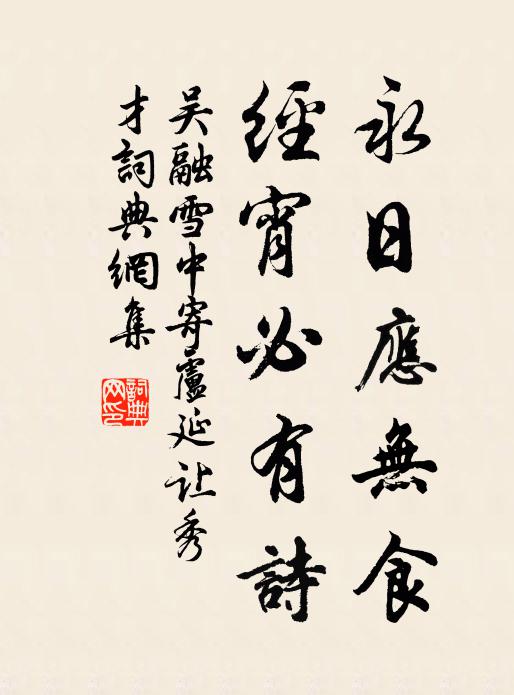 永日應無食
經宵必有詩
吳融雪中寄盧延让秀
才詞典網集
詞典网印